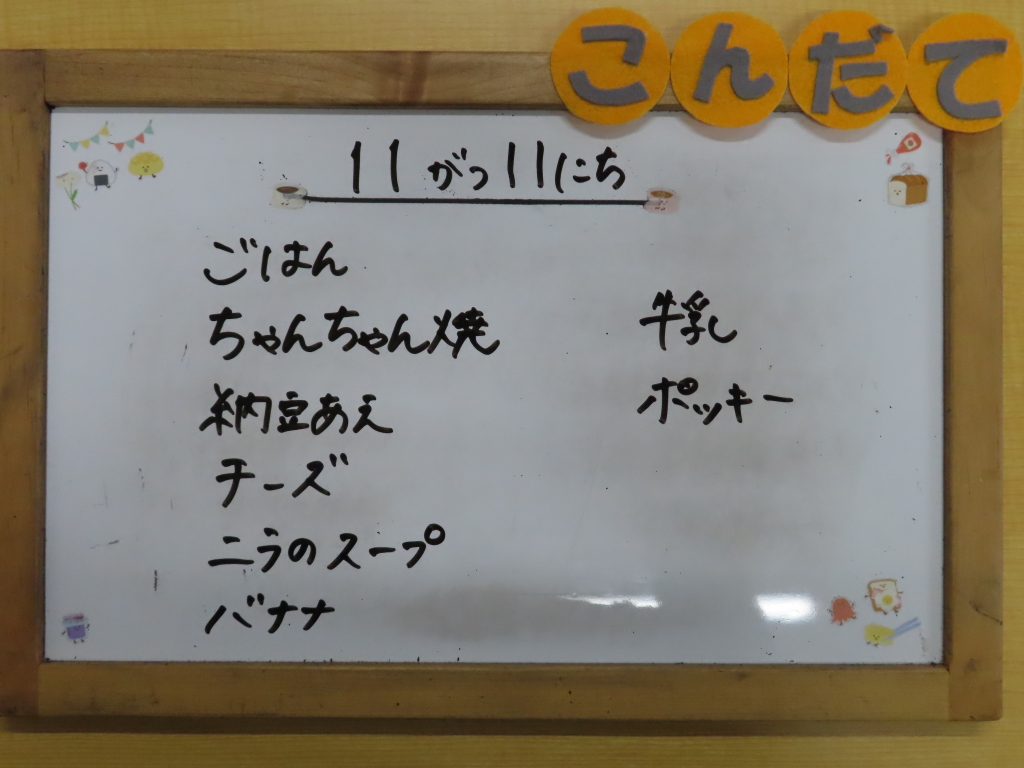 こんだて
11がつ11にち
ごはん
ちゃんちゃん焼
納豆あえ
チーズ
ニラのスープ
バナナ
牛乳
ポッキー